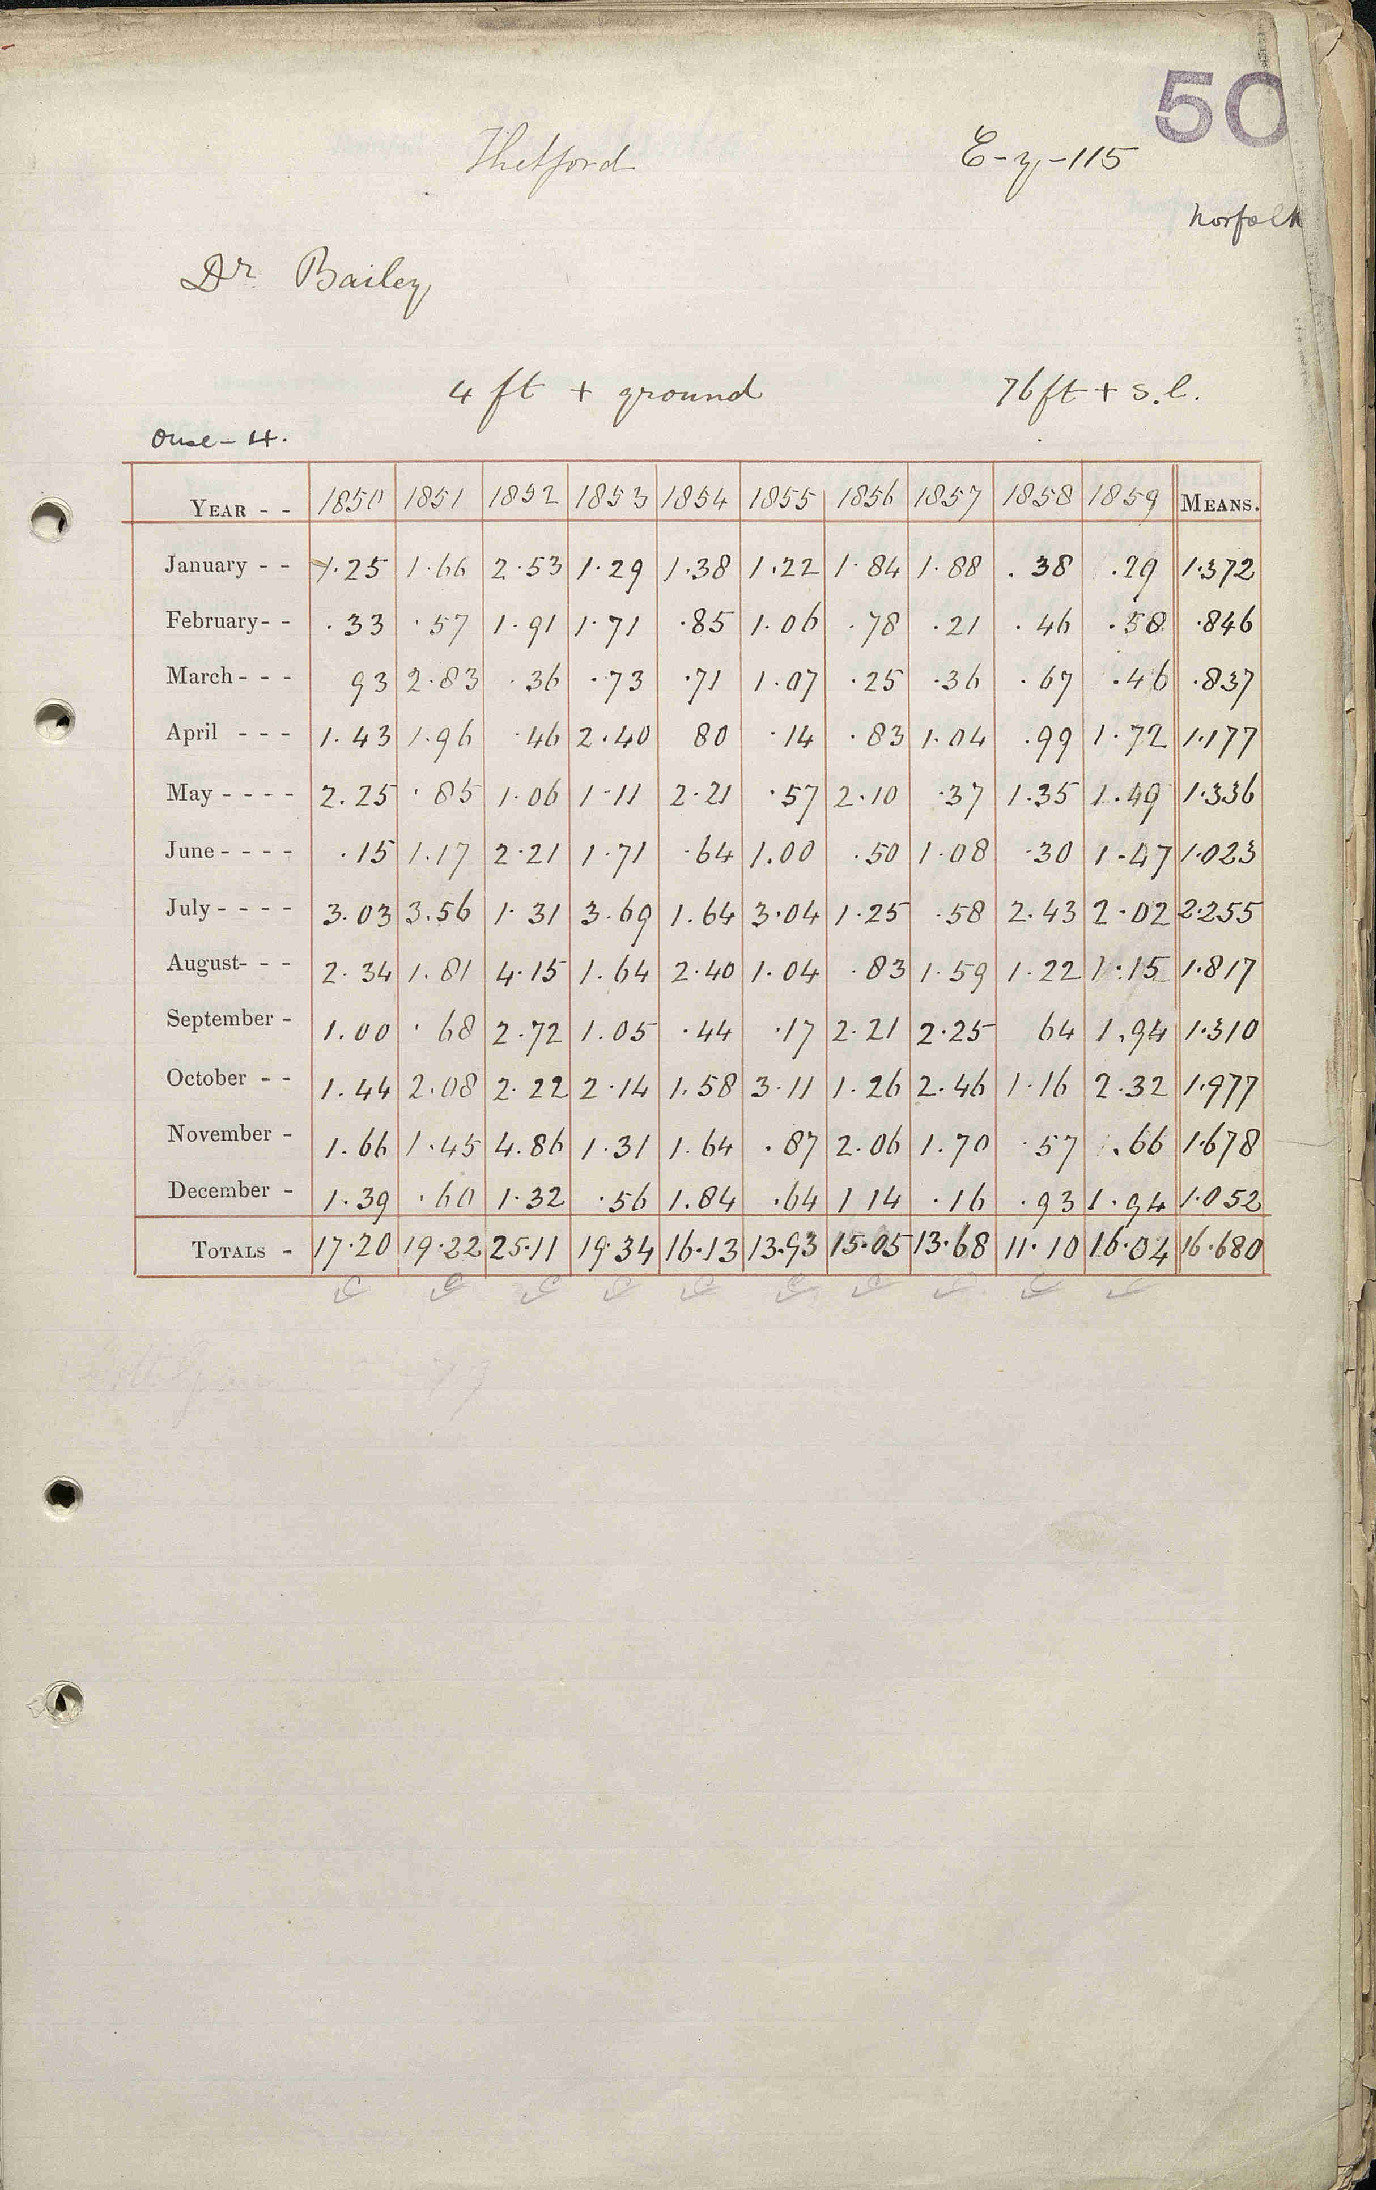 50
Thetford E-y-115
Norfolk
Dr. Bailey
4 ft + ground 76 ft + s.l.
Ouse - H.
YEAR - - 1850 1851 1852 1853 1854 1855 1856 1857 1858 1859 MEANS.
January - - 1.25 1.66 2.53 1.29 1.38 1.22 1.84 1.88 .38 .29 1.372
February - - .33 .57 1.91 1.71 .85 1.06 .78 .21 .46 .58 .846
March - - - 93 2.83 .36 .73 .71 1.07 .25 .36 .67 .46 .837
April - - - 1.43 1.96 .46 2.40 80 .14 .83 1.04 .99 1.72 1.177
May - - - - 2.25 .85 1.06 1.11 2.21 .57 2.10 .37 1.35 1.49 1.336
June - - - - .15 1.17 2.21 1.71 .64 1.00 .50 1.08 .30 1.47 1.023
July - - - - 3.03 3.56 1.31 3.69 1.64 3.04 1.25 .58 2.43 2.02 2.255
August - - - 2.34 1.81 4.15 1.64 2.40 1.04 .83 1.59 1.22 1.15 1.817
September - 1.00 .68 2.72 1.05 .44 .17 2.21 2.25 64 1.94 1.310
October - - 1.44 2.08 2.22 2.14 1.58 3.11 1.26 2.46 1.16 2.32 1.977
November - 1.66 1.45 4.86 1.31 1.64 .87 2.06 1.70 .57 .66 1.678
December - 1.39 .60 1.32 .56 1.84 .64 1 14 .16 .93 1.94 1.052
TOTALS - 17.20 19.22 25.11 19.34 16.13 13.93 15.05 13.68 11.10 16.04 16.680